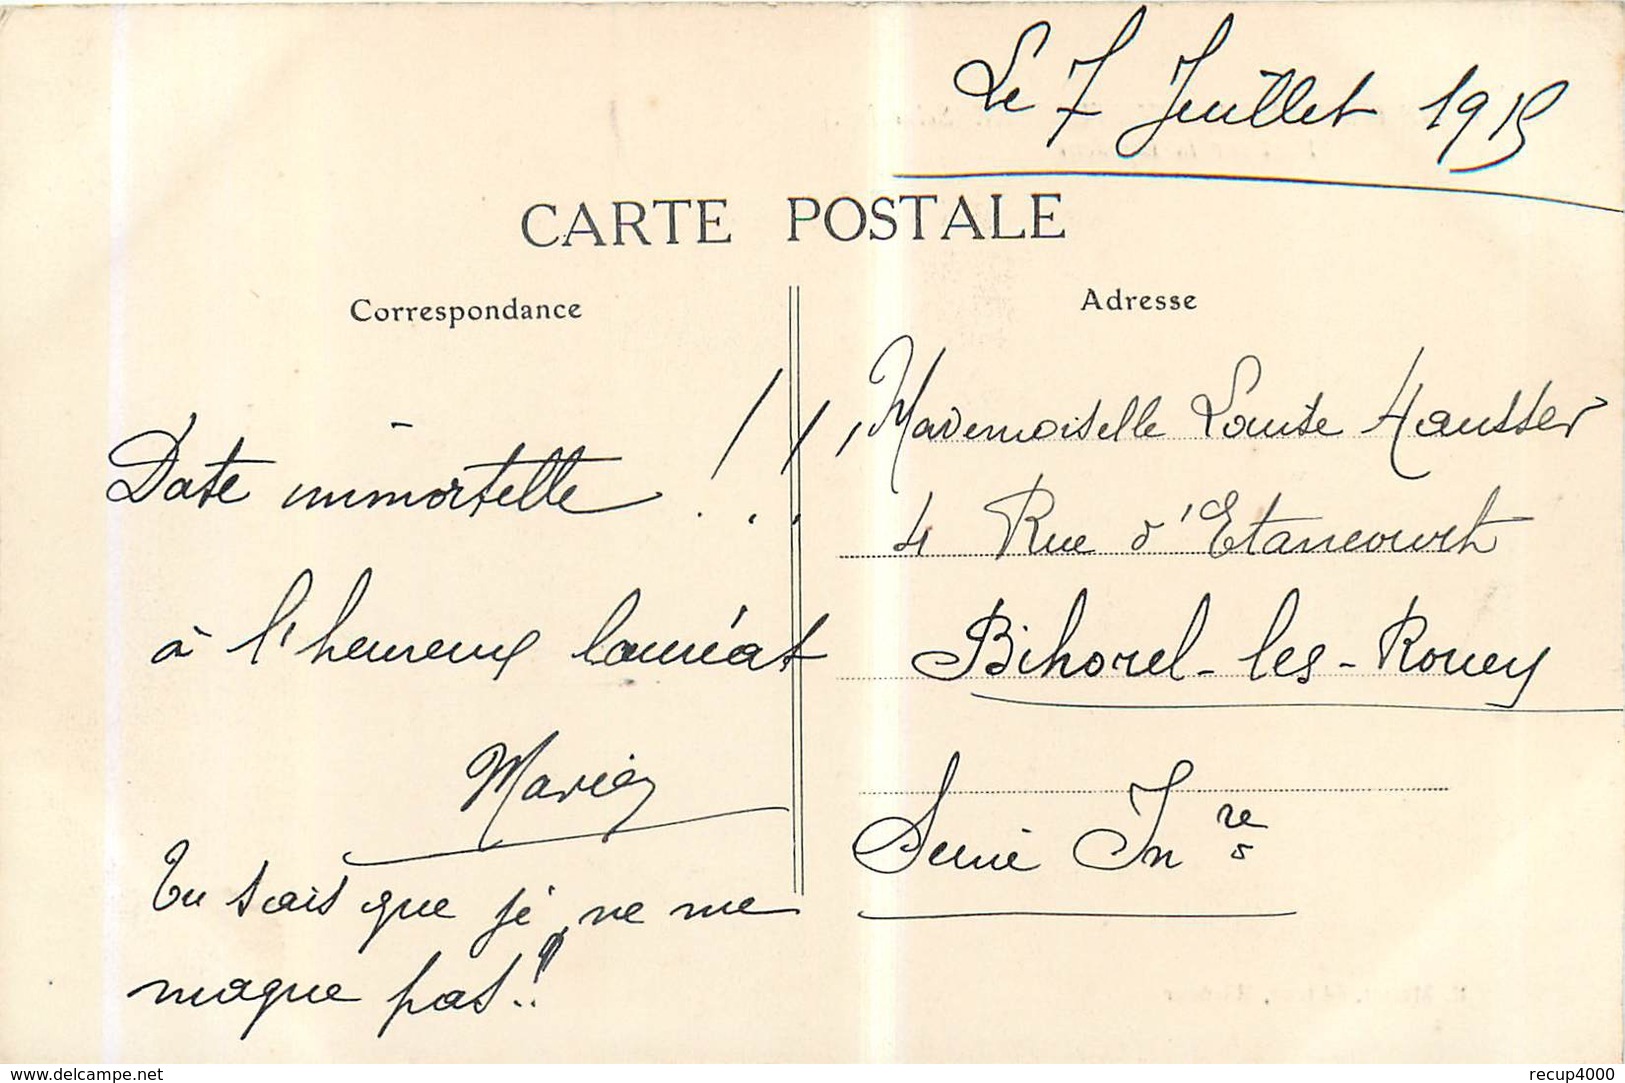 Le 7 Juillet 1915
CARTE POSTALE
Correspondance
Date immortelle !!!
à l'heureux lauréat
Tu sais que je ne me
moque pas!!
Adresse
Mademoiselle Louise Hausser
4 Rue d'Etancourt
Bihorel-les-Rouen
Seine Inre
www.delcampe.net
recup4000